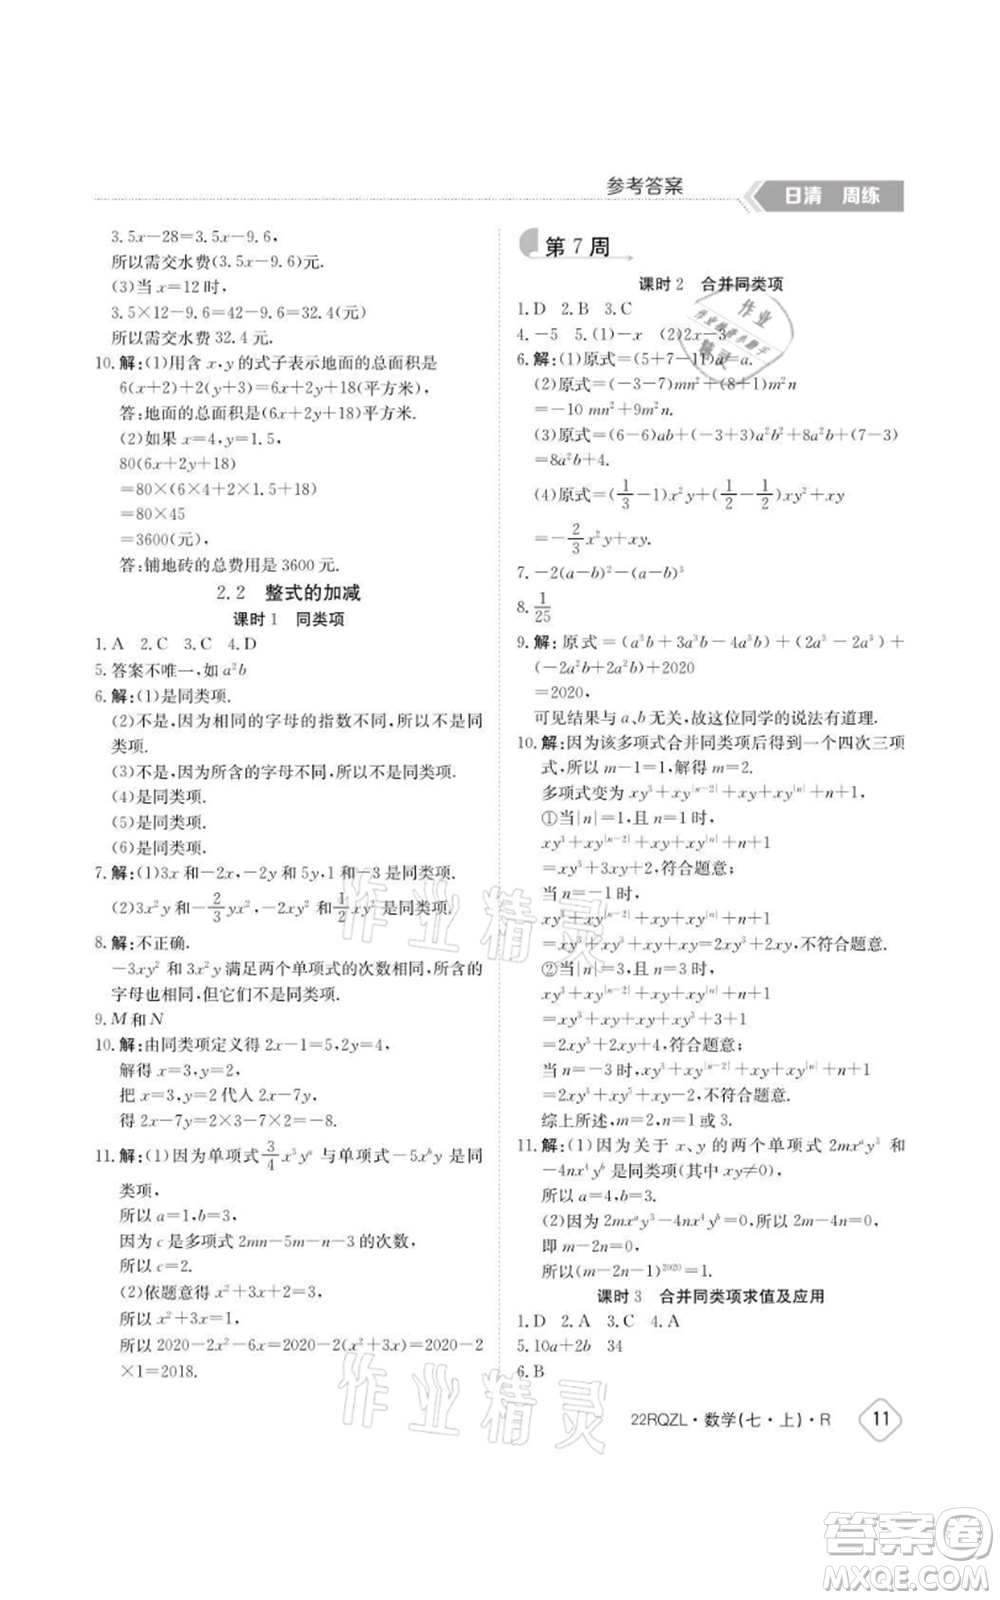 参考答案
日清 周练
3.5x-28=3.5x-9.6,
所以需交水费(3.5x-9.6)元.
(3)当 x=12 时,
3.5×12-9.6=42-9.6=32.4(元)
所以需交水费 32.4 元.
10.解:(1)用含 x,y 的式子表示地面的总面积是
6(x+2)+2(y+3)=6x+2y+18(平方米).
答:地面的总面积是(6x+2y+18)平方米.
(2)如果 x=4,y=1.5,
80(6x+2y+18)
=80×(6×4+2×1.5+18)
=80×45
=3600(元),
答:铺地砖的总费用是 3600 元.
2.2 整式的加减
课时1 同类项
1.A 2.C 3.C 4.D
5.答案不唯一,如 a²b
6.解:(1)是同类项.
(2)不是,因为相同的字母的指数不同,所以不是同
类项.
(3)不是,因为所含的字母不同,所以不是同类项.
(4)是同类项.
(5)是同类项.
(6)是同类项.
7.解:(1)3x 和-2x,-2y 和 5y,1 和-3 是同类项.
(2)3x²y 和-2/3yx²,-2xy² 和 1/2xy² 是同类项.
8.解:不正确.
-3xy² 和 3x²y 满足两个单项式的次数相同,所含的
字母也相同,但它们不是同类项.
9.M 和 N
10.解:由同类项定义得 2x-1=5,2y=4,
解得 x=3,y=2;
把 x=3,y=2 代入 2x-7y,
得 2x-7y=2×3-7×2=-8.
11.解:(1)因为单项式3/4x³yᵃ 与单项式-5xᵇy 是同
类项,
所以 a=1,b=3,
因为 c 是多项式 2mn-5m-n-3 的次数,
所以 c=2.
(2)依题意得 x²+3x+2=3,
所以 x²+3x=1,
所以 2020-2x²-6x=2020-2(x²+3x)=2020-2
×1=2018.
第 7 周
课时2 合并同类项
1.D 2.B 3.C
4.-5 5.(1)-x (2)2x-3
6.解:(1)原式=(5+7-11)a=a.
(2)原式=(-3-7)mn²+(8+1)m²n
=-10 mn²+9m²n.
(3)原式=(6-6)ab+(-3+3)a²b²+8a²b+4
=8a²b+4.
(4)原式=(1/3-1)x²y+(1/2-1/2)xy²+xy
=-2/3x²y+xy.
7.-2(a-b)²-(a-b)³
8.1/25
9.解:原式=(a³b+3a³b-4a³b)+(2a³-2a³)+
(-2a²b+2a²b)+2020
=2020,
可见结果与 a、b 无关,故这位同学的说法有道理.
10.解:因为该多项式合并同类项后得到一个四次三项
式,所以 m-1=1,解得 m=2.
多项式变为 xy³+xy|ⁿ⁻²|+xy|ⁿ|+n+1,
①当|n|=1,且 n=1时,
xy³+xy|ⁿ⁻²|+xy|ⁿ|+n+1
=xy³+xy+xy+2,符合题意;
当 n=-1 时,
xy³+xy|ⁿ⁻²|+xy|ⁿ|+n+1
=xy³+xy³+xy,不符合题意.
②当|n|=3,且 n=3 时,
xy³+xy|ⁿ⁻²|+xy|ⁿ|+n+1
=xy³+xy+xy³+3+1
=2xy³+xy+4,符合题意;
当 n=-3 时,xy³+xy|ⁿ⁻²|+xy|ⁿ|+n+1
=xy³+xy⁵+xy³-2,不符合题意.
综上所述,m=2,n=1 或 3.
11.解:(1)因为关于 x、y 的两个单项式 2mxᵃy³ 和
-4nx⁴yᵇ 是同类项(其中 xy≠0),
所以 a=4,b=3.
(2)因为 2mxᵃy³-4nx⁴yᵇ=0,所以 2m-4n=0,
即 m-2n=0,
所以(m-2n-1)²⁰²⁰=1.
课时3 合并同类项求值及应用
1.D 2.A 3.C 4.A
5.10a+2b 34
6.B
22RQZL·数学(七·上)·R 11
作业精灵
作业精灵
答案卷
MXQE.COM